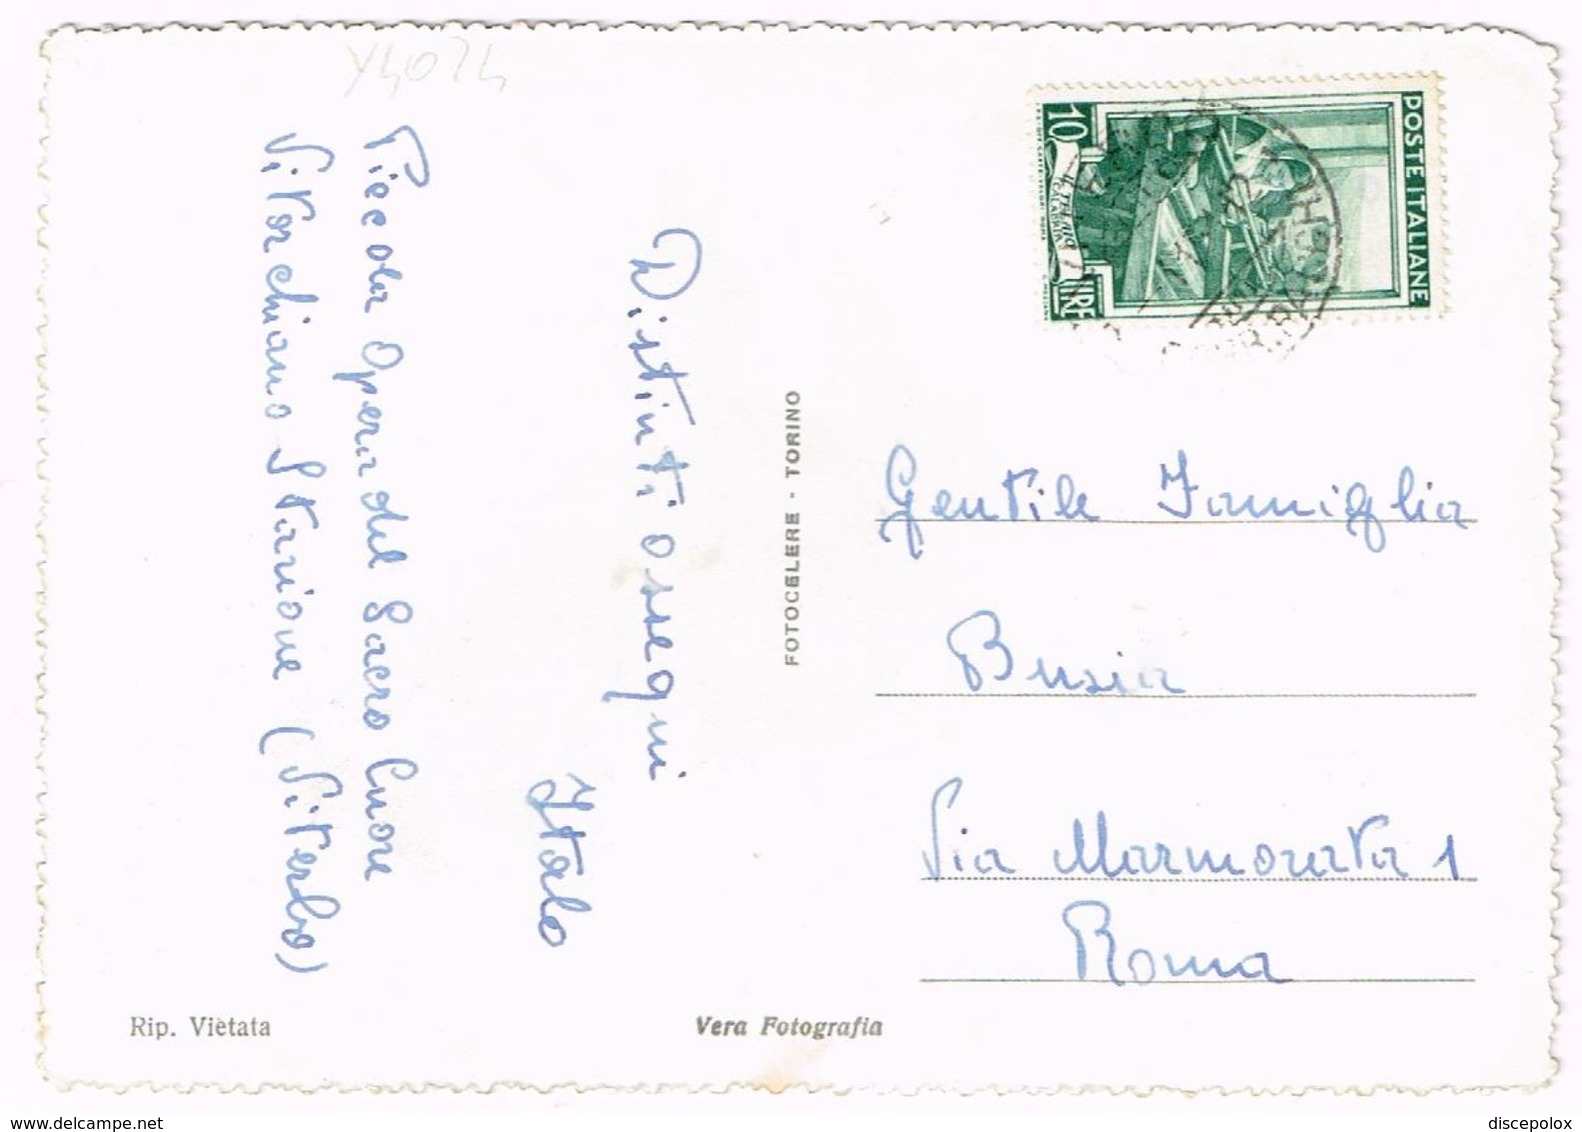 Y4074
Piccola Opera del Sacro Cuore
Vitorchiano Stazione (Viterbo)
Distinti ossequi
Italo
FOTOCELERE - TORINO
POSTE ITALIANE
10
LIRE
Gentile Famiglia
Busia
Via Marmorata 1
Roma
Rip. Vietata
Vera Fotografia
www.delcampe.net
discepolox